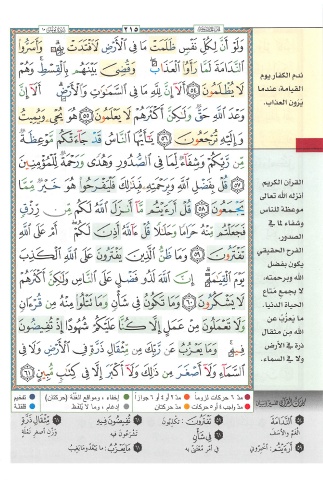 ٢١٥
وَلَوْ أَنَّ لِكُلِّ نَفْسٍ ظَلَمَتْ مَا فِي الْأَرْضِ لَافْتَدَتْ بِهِ وَأَسَرُّوا
النَّدَامَةَ لَمَّا رَأَوُا الْعَذَابَ وَقُضِيَ بَيْنَهُم بِالْقِسْطِ وَهُمْ
لَا يُظْلَمُونَ ٥٤ أَلَا إِنَّ لِلَّهِ مَا فِي السَّمَاوَاتِ وَالْأَرْضِ أَلَا إِنَّ
وَعْدَ اللَّهِ حَقٌّ وَلَٰكِنَّ أَكْثَرَهُمْ لَا يَعْلَمُونَ ٥٥ هُوَ يُحْيِي وَيُمِيتُ
وَإِلَيْهِ تُرْجَعُونَ ٥٦ يَا أَيُّهَا النَّاسُ قَدْ جَاءَتْكُم مَّوْعِظَةٌ
مِّن رَّبِّكُمْ وَشِفَاءٌ لِّمَا فِي الصُّدُورِ وَهُدًى وَرَحْمَةٌ لِّلْمُؤْمِنِينَ
٥٧ قُلْ بِفَضْلِ اللَّهِ وَبِرَحْمَتِهِ فَبِذَٰلِكَ فَلْيَفْرَحُوا هُوَ خَيْرٌ مِّمَّا
يَجْمَعُونَ ٥٨ قُلْ أَرَأَيْتُم مَّا أَنزَلَ اللَّهُ لَكُم مِّن رِّزْقٍ
فَجَعَلْتُم مِّنْهُ حَرَامًا وَحَلَالًا قُلْ آللَّهُ أَذِنَ لَكُمْ أَمْ عَلَى اللَّهِ
تَفْتَرُونَ ٥٩ وَمَا ظَنُّ الَّذِينَ يَفْتَرُونَ عَلَى اللَّهِ الْكَذِبَ
يَوْمَ الْقِيَامَةِ إِنَّ اللَّهَ لَذُو فَضْلٍ عَلَى النَّاسِ وَلَٰكِنَّ أَكْثَرَهُمْ
لَا يَشْكُرُونَ ٦٠ وَمَا تَكُونُ فِي شَأْنٍ وَمَا تَتْلُو مِنْهُ مِن قُرْآنٍ
وَلَا تَعْمَلُونَ مِنْ عَمَلٍ إِلَّا كُنَّا عَلَيْكُمْ شُهُودًا إِذْ تُفِيضُونَ
فِيهِ وَمَا يَعْزُبُ عَن رَّبِّكَ مِن مِّثْقَالِ ذَرَّةٍ فِي الْأَرْضِ وَلَا فِي
السَّمَاءِ وَلَا أَصْغَرَ مِن ذَٰلِكَ وَلَا أَكْبَرَ إِلَّا فِي كِتَابٍ مُّبِينٍ ٦١
ندم الكفار يوم
القيامة، عندما
يرون العذاب.
القرآن الكريم
أنزله الله تعالى
موعظة للناس
وشفاء لما في
الصدور.
الفرح الحقيقي
يكون بفضل
الله وبرحمته،
لا بجمع متاع
الحياة الدنيا.
ما يعزب عن
الله من مثقال
ذرة في الأرض
ولا في السماء.
مد ٦ حركات لزوماً
مد ٢ أو ٤ أو ٦ جوازاً
إخفاء، ومواقع الغنة (حركتان)
تفخيم
مد واجب ٤ أو ٥ حركات
مد حركتان
إدغام، وما لا يلفظ
قلقلة
النَّدَامَةَ
الغم والأسف
أَرَأَيْتُم: أخبروني
تَفْتَرُونَ: تكذبون
فِي شَأْنٍ
في أمر معتنى به
تُفِيضُونَ فِيهِ
تشرعون فيه
مَا يَعْزُبُ: ما يبعد وما يغيب
مِثْقَالِ ذَرَّةٍ
وزن أصغر نملة